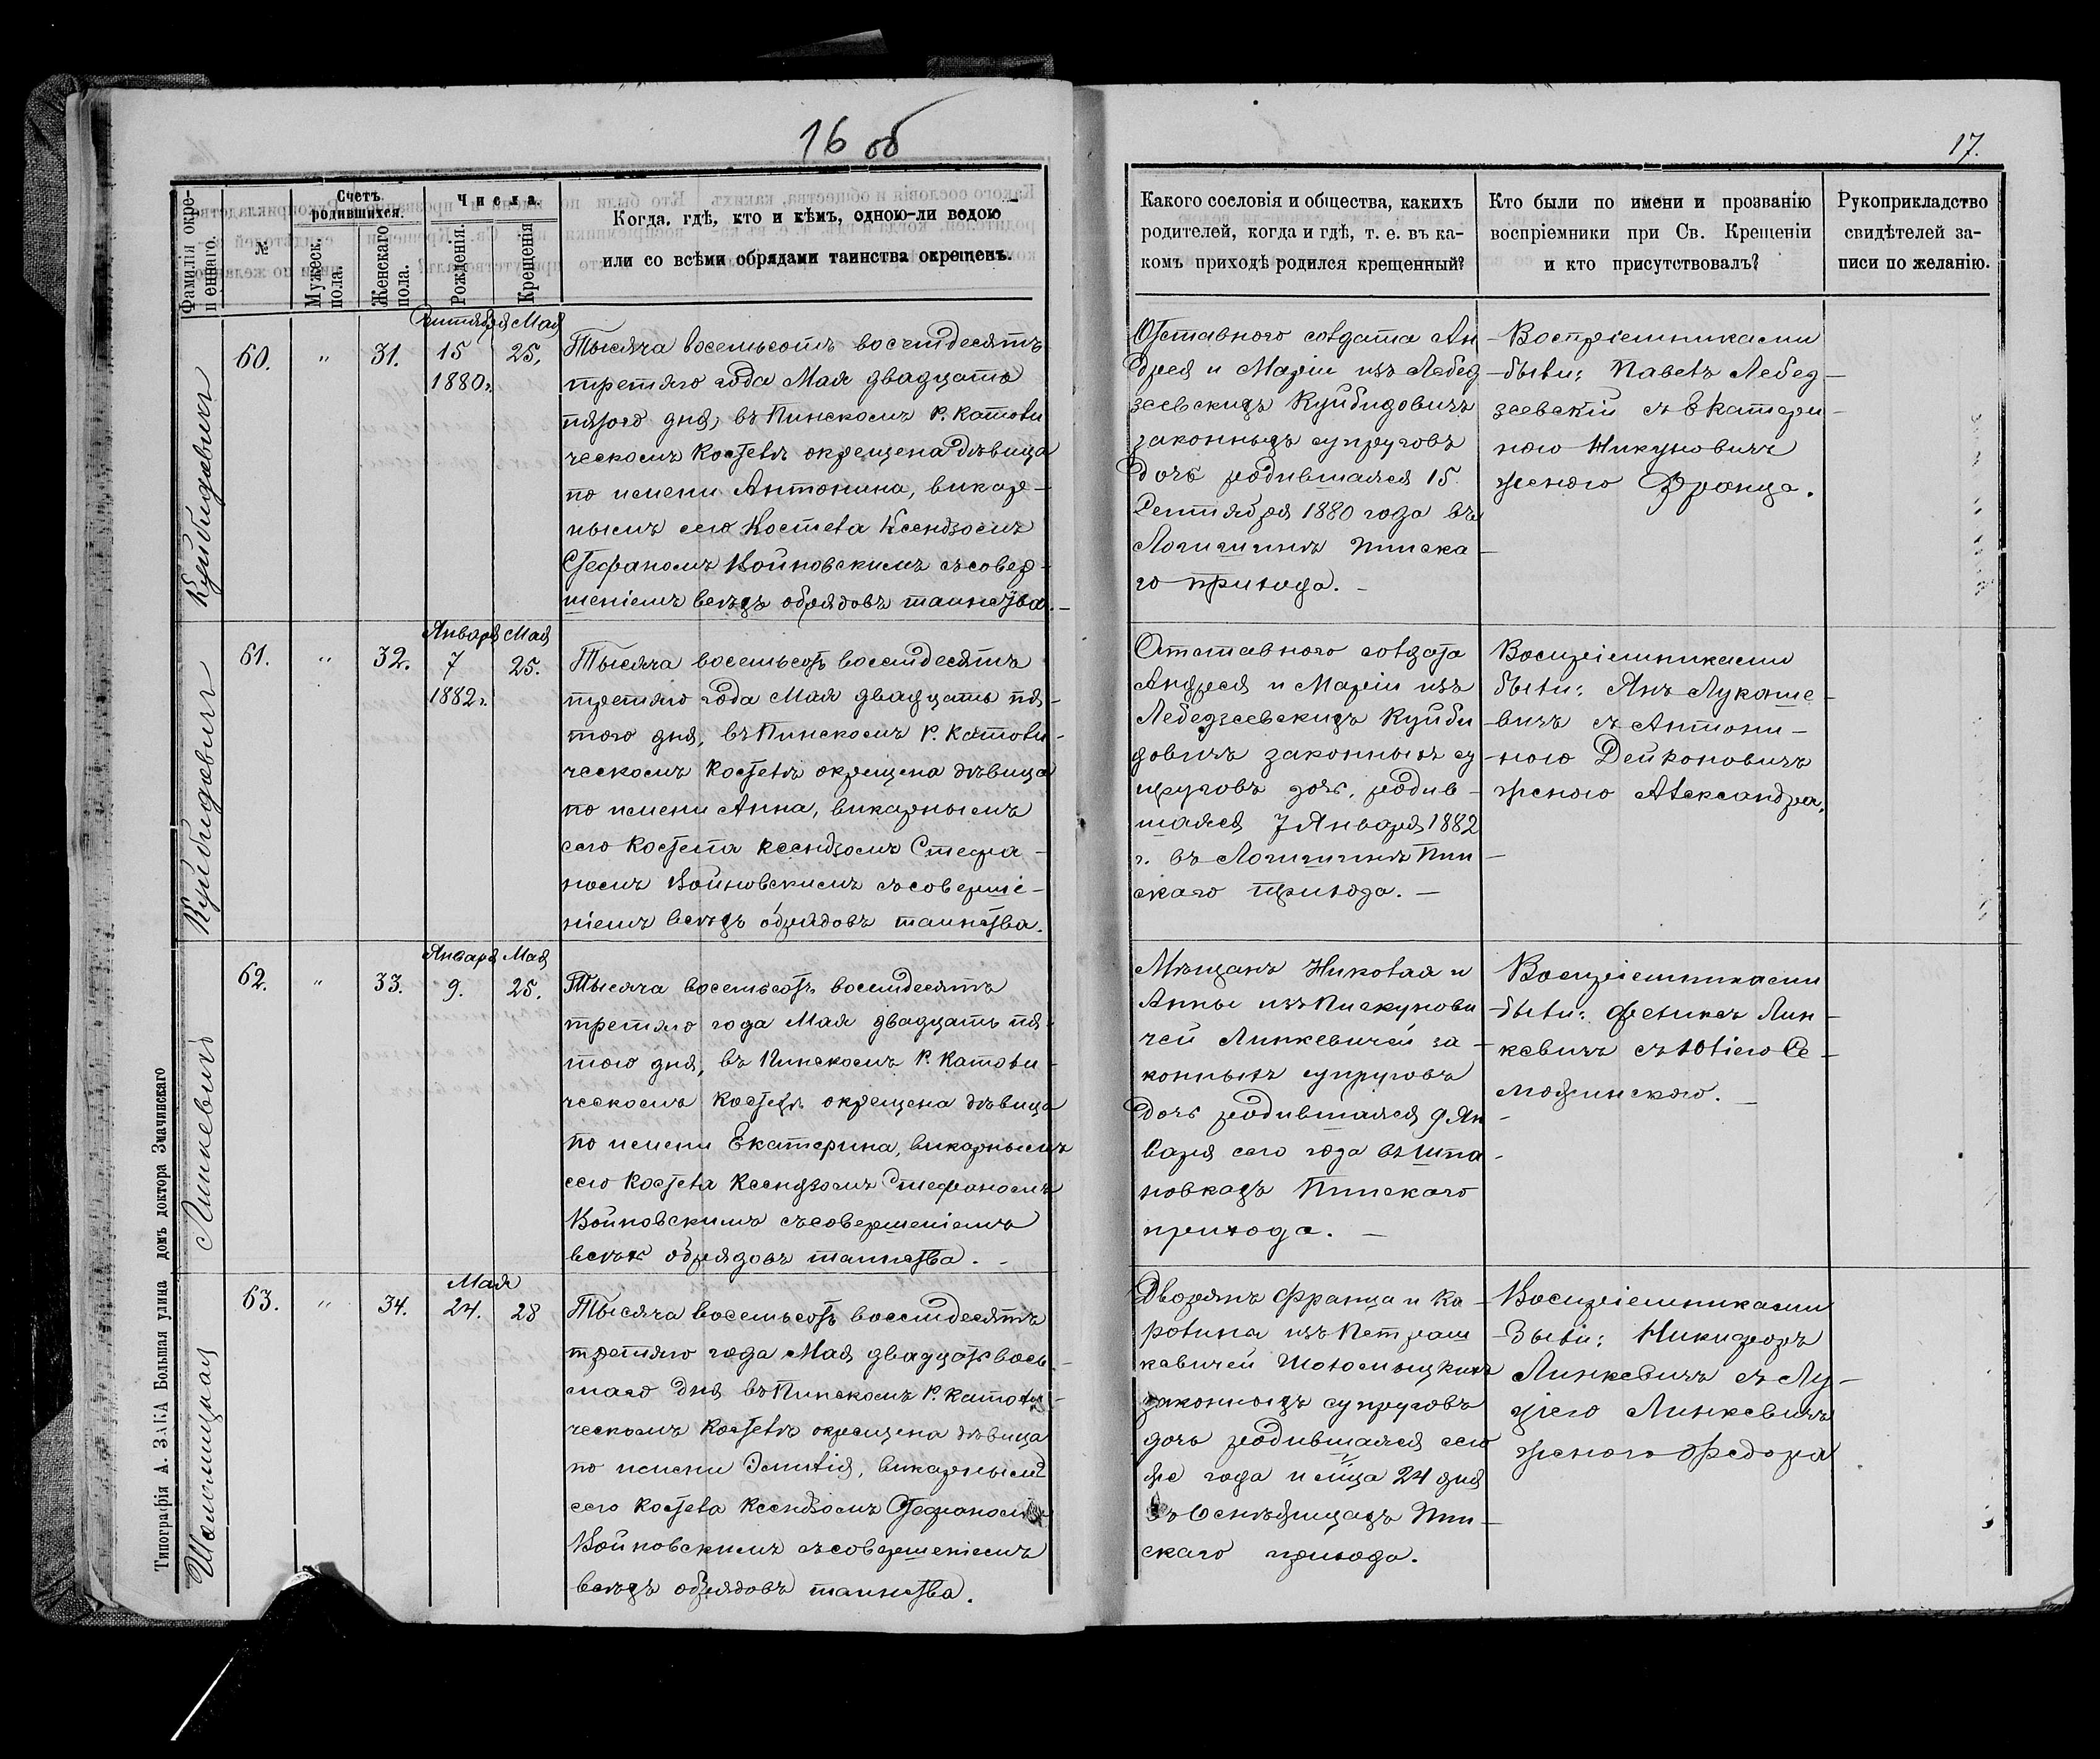 16 об
17.
Фамилія окре-
щеннаго.
№
Счетъ
родившихся.
Мужеск.
пола.
Женскаго
пола.
Числа.
Рожденія.
Крещенія
Когда, гдѣ, кто и кѣмъ, одною-ли водою
или со всѣми обрядами таинства окрещенъ.
Какого сословія и общества, какихъ
родителей, когда и гдѣ, т. е. въ ка-
комъ приходѣ родился крещенный?
Кто были по имени и прозванію
воспріемники при Св. Крещеніи
и кто присутствовалъ?
Рукоприкладство
свидѣтелей за-
писи по желанію.
Куйбидовичъ
60.
"
31.
Сентября
15
1880г.
Мая
25.
Тысяча восемьсотъ восемдесятъ
третяго года Мая двадцать
пятого дня, въ Пинскомъ Р. Католи
ческомъ Костелѣ окрещена дѣвица
по имени Антонина, викар-
нымъ сего Костела Ксендзомъ
Стефаномъ Войновскимъ съ совер-
шеніемъ всѣхъ обрядовъ таинства.-
Отставного солдата Ан
дрея и Маріи изъ Лебед
зеевскихъ Куйбидовичъ
законныхъ супруговъ
дочь родившаяся 15.
Сентября 1880 года въ
Логишинѣ Пинска-
го прихода. -
Воспріемниками
были: Павелъ Лебед-
зеевскій съ Екатери-
ною Никуновичъ
женою Франца.
Куйбидовичъ
61.
"
32.
Января
7
1882г.
Мая
25.
Тысяча восемьсотъ восемдесятъ
третяго года Мая двадцать пя-
того дня, въ Пинскомъ Р. Католи-
ческомъ Костелѣ окрещена дѣвица
по имени Анна, викарнымъ
сего Костела Ксендзомъ Стефа-
номъ Войновскимъ съ соверше-
ніемъ всѣхъ обрядовъ таинства.
Отставного солдата
Андрея и Маріи изъ
Лебедзеевскихъ Куйби
довичъ законныхъ су
пруговъ дочь, родив-
шаяся 7 Января 1882
г. въ Логишинѣ Пин-
скаго прихода. -
Воспріемниками
были: Янъ Лукаше-
вичъ съ Антони-
ною Дейконовичъ
женою Александра.
Линкевичъ
62.
"
33.
Января
9.
Мая
25.
Тысяча восемьсотъ восемдесятъ
третяго года Мая двадцать пя-
того дня, въ Пинскомъ Р. Католи-
ческомъ Костелѣ окрещена дѣвица
по имени Екатерина, викарнымъ
сего Костела Ксендзомъ Стефаномъ
Войновскимъ съ совершеніемъ
всѣхъ обрядовъ таинства. -
Мѣщанъ Николая и
Анны изъ Пискунови
чей Линкевичей за-
конныхъ супруговъ
дочь родившаяся 9 Ян-
варя сего года въ Шпа-
новкахъ Пинскаго
прихода. -
Воспріемниками
были: Феликсъ Лин-
кевичъ съ Юліею Се-
мажинскою. -
Шоломицкая
63.
"
34.
Мая
24.
28
Тысяча восемьсотъ восемдесятъ
третяго года Мая двадцать вось-
маго дня въ Пинскомъ Р. Католи-
ческомъ Костелѣ окрещена дѣвица
по имени Эмилія, викарнымъ
сего Костела Ксендзомъ Стефаномъ
Войновскимъ съ совершеніемъ
всѣхъ обрядовъ таинства.
Дворянъ Франца и Ка-
ролины изъ Петраш
кевичей Шоломицкихъ
законныхъ супруговъ
дочь родившаяся сего
же года и мца 24 дня
въ Оснѣжицахъ Пин-
скаго прихода.
Воспріемниками
были: Никифоръ
Линкевичъ съ Лу-
ціею Линкевичъ
женою Федора
Типографія А. ЗАКА Большая улица домъ доктора Змачинскаго